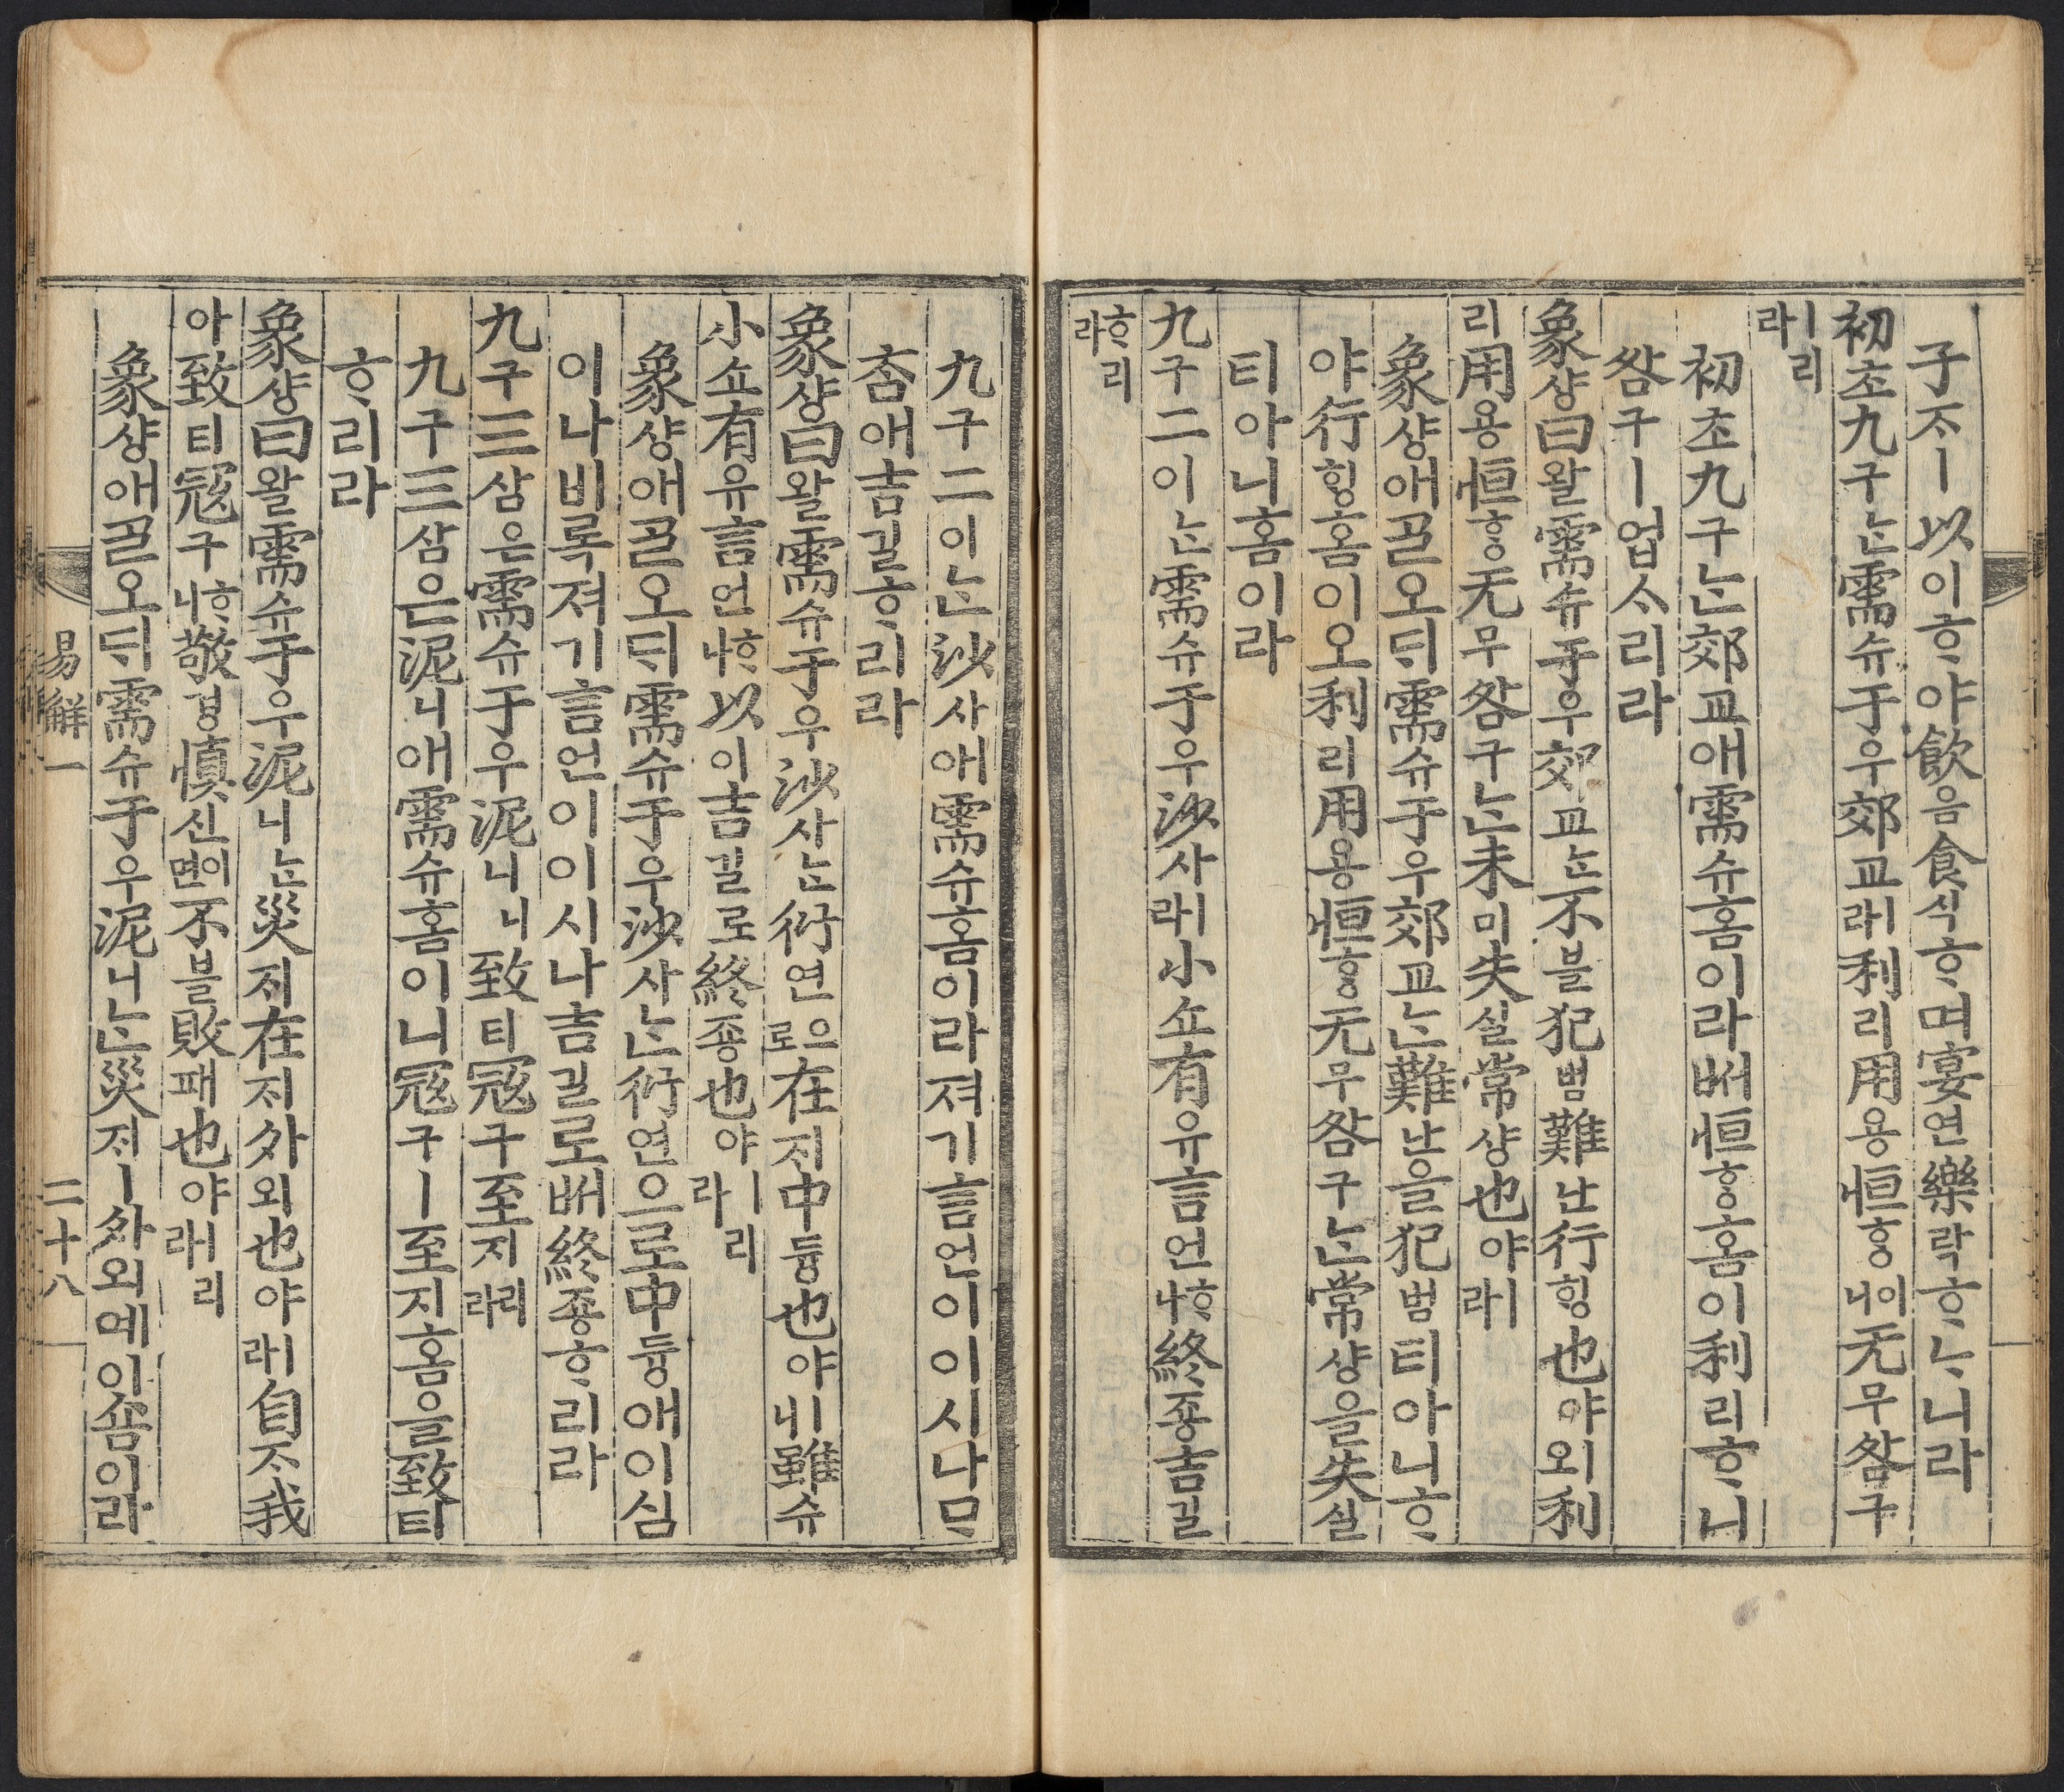 子ᄌᆞㅣ以이ᄒᆞ야飮음食식ᄒᆞ며宴연樂락ᄒᆞᄂᆞ니라
初초九구ᄂᆞᆫ需슈于우郊교ㅣ라利리用용恒ᄒᆞᆼ이니无무咎구
ㅣ리라
初초九구ᄂᆞᆫ郊교애需슈홈이라ᄡᅥ恒ᄒᆞᆼ홈이利리ᄒᆞ니
咎구ㅣ업스리라
象샹曰왈需슈于우郊교ᄂᆞᆫ不블犯범難난行ᄒᆡᆼ也야외利
리用용恒ᄒᆞᆼ无무咎구ᄂᆞᆫ未미失실常샹也야ㅣ라
象샹애ᄀᆞᆯ오ᄃᆡ需슈于우郊교ᄂᆞᆫ難난을犯범티아니ᄒᆞ
야行ᄒᆡᆼ홈이오利리用용恒ᄒᆞᆼ无무咎구ᄂᆞᆫ常샹을失실
티아니홈이라
九구二이ᄂᆞᆫ需슈于우沙사ㅣ라小쇼有유言언ᄒᆞ나終죵吉길
ᄒᆞ리라
九구二이ᄂᆞᆫ沙사애需슈홈이라져기言언이이시나ᄆᆞ
ᄎᆞᆷ애吉길ᄒᆞ리라
象샹曰왈需슈于우沙사ᄂᆞᆫ衍연으로在ᄌᆡ中듕也야ㅣ니雖슈
小쇼有유言언ᄒᆞ나以이吉길로終죵也야ㅣ리라
象샹애ᄀᆞᆯ오ᄃᆡ需슈于우沙사ᄂᆞᆫ衍연으로中듕애이심
이나비록져기言언이이시나吉길로ᄡᅥ終죵ᄒᆞ리라
九구三삼은需슈于우泥니니致티寇구至지리라
九구三삼은泥니애需슈홈이니寇구ㅣ至지홈을致티
ᄒᆞ리라
象샹曰왈需슈于우泥니ᄂᆞᆫ災ᄌᆡ在ᄌᆡ外외也야ㅣ라自ᄌᆞ我
아致티寇구ᄒᆞ니敬경愼신이면不블敗패也야ㅣ리라
象샹애ᄀᆞᆯ오ᄃᆡ需슈于우泥니ᄂᆞᆫ災ᄌᆡㅣ外외예이숌이라
易解一 二十八